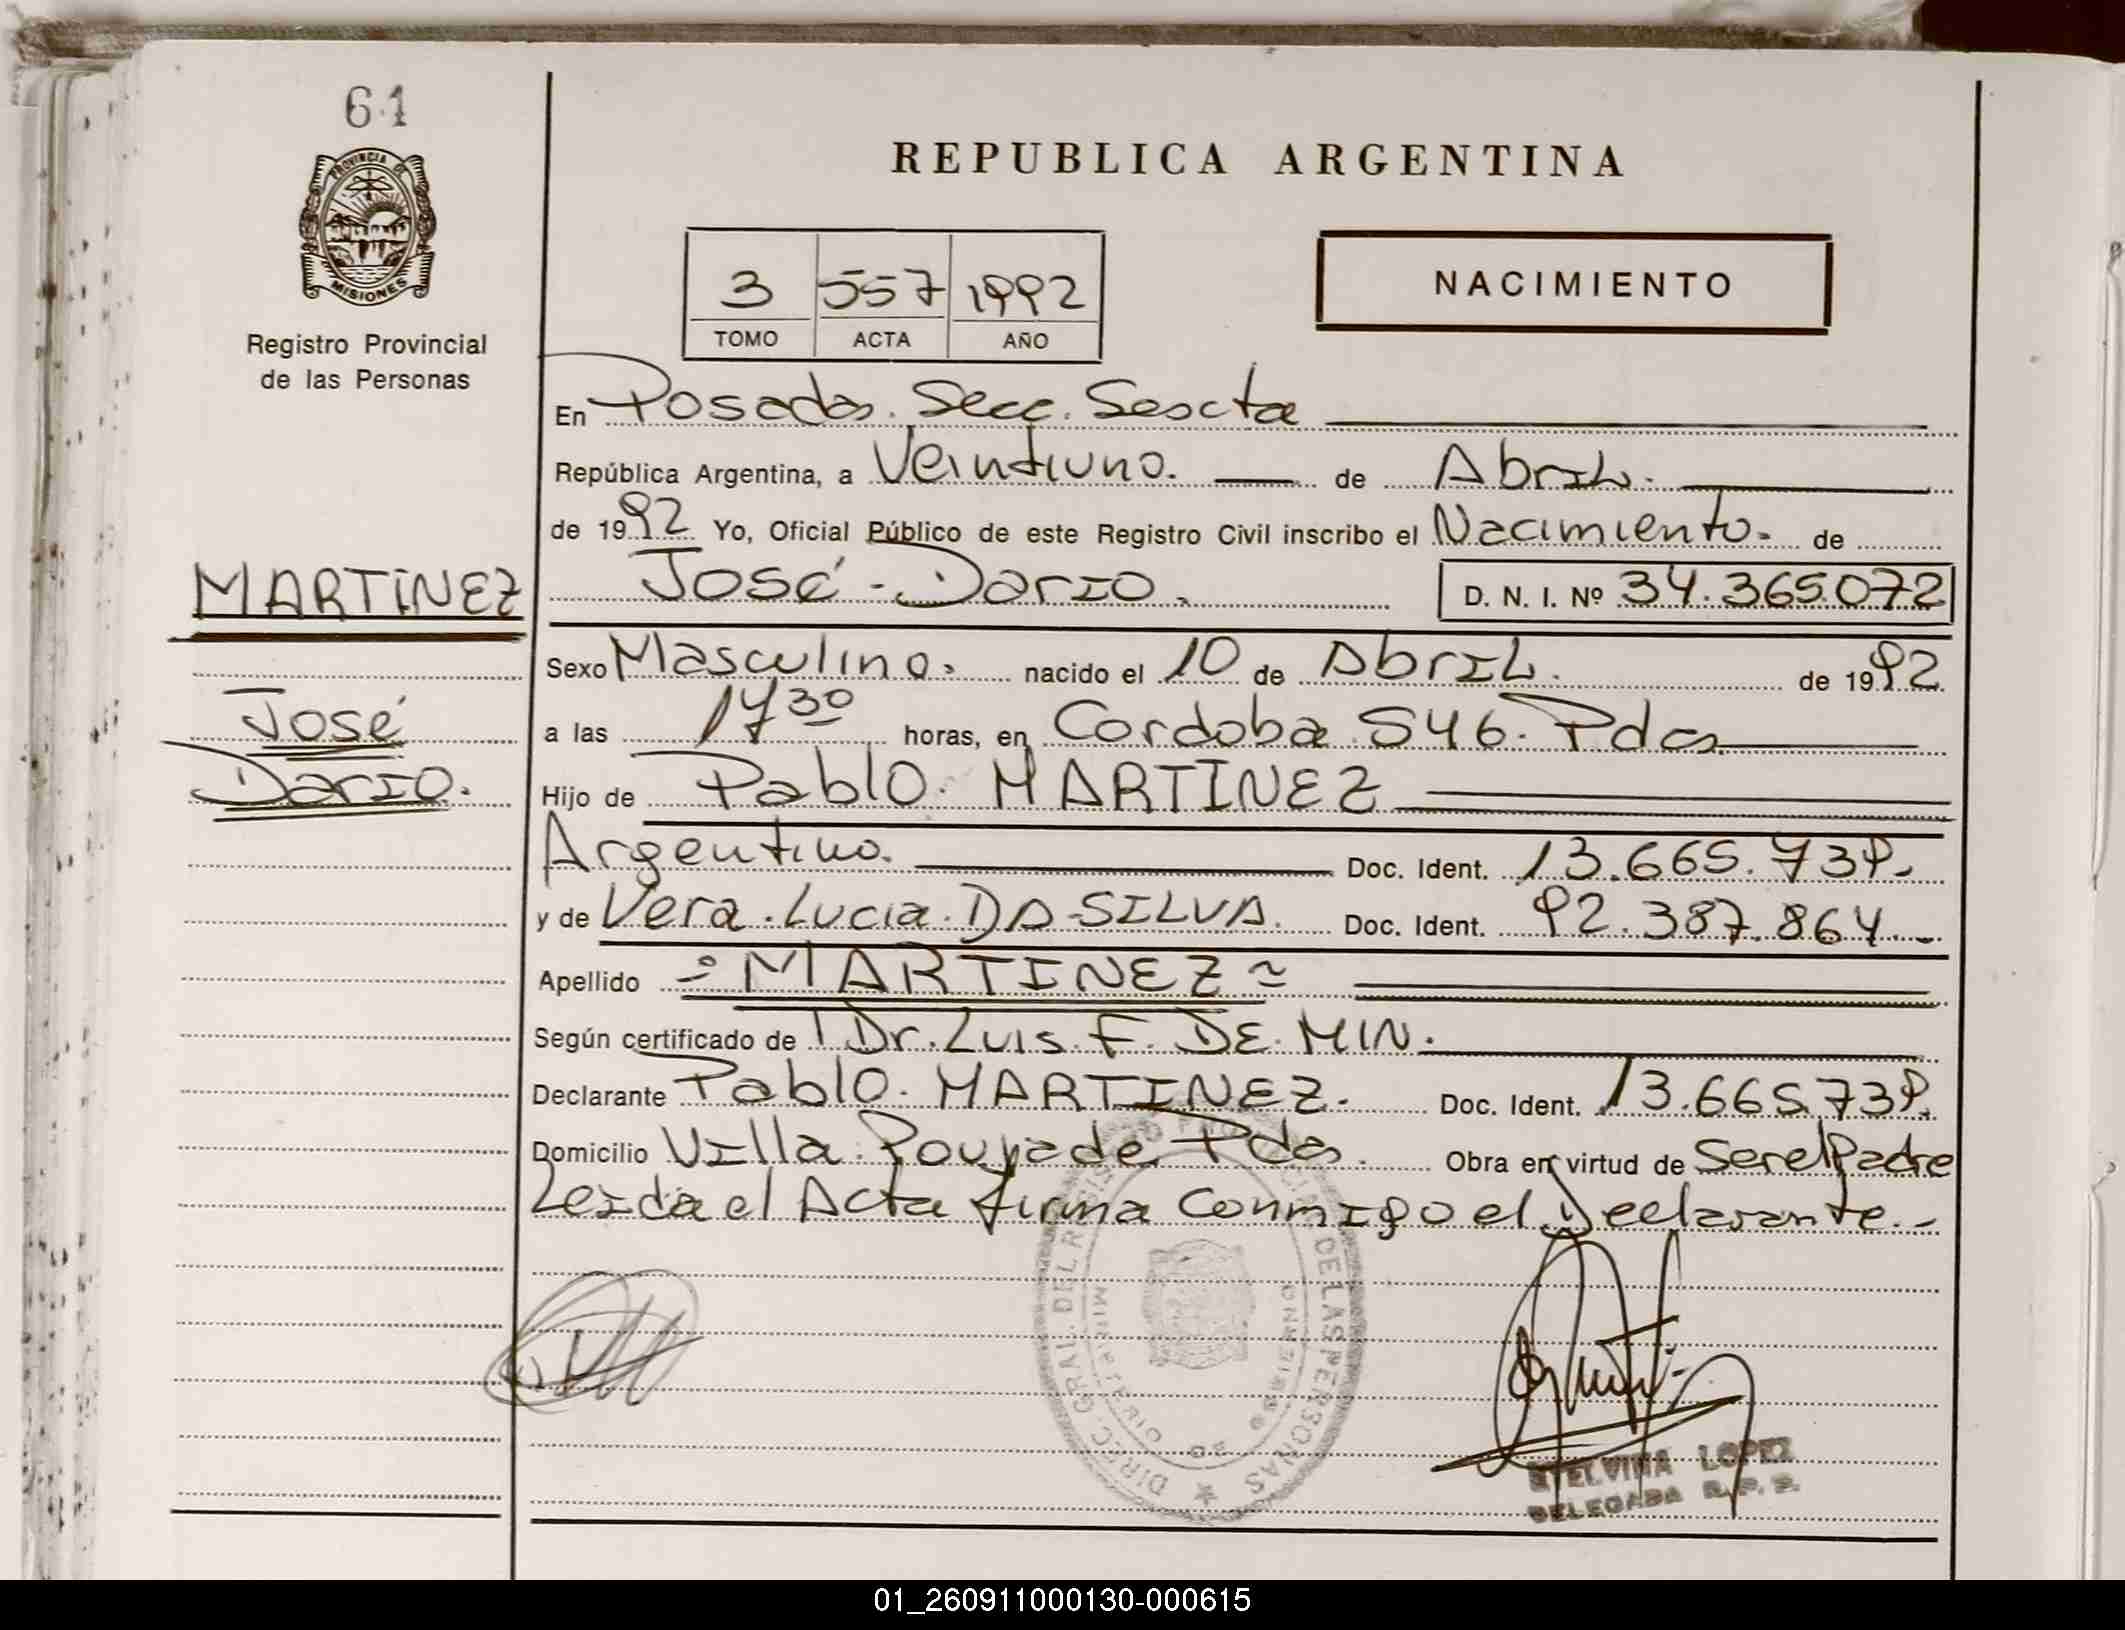 61
PROVINCIA DE
MISIONES
Registro Provincial
de las Personas
MARTINEZ
José
Darío.
REPUBLICA ARGENTINA
3 557 1992
TOMO ACTA AÑO
NACIMIENTO
En Posadas. Secc. Sescta
República Argentina, a Veintiuno. de Abril.
de 1992 Yo, Oficial Público de este Registro Civil inscribo el Nacimiento. de
José - Darío. D. N. I. Nº 34.365.072
Sexo Masculino. nacido el 10 de Abril. de 1992
a las 17 30 horas, en Cordoba 546. Pdas
Hijo de Pablo. MARTINEZ
Argentino. Doc. Ident. 13.665.739.
y de Vera. Lucia. DA SILVA. Doc. Ident. 92.387.864.
Apellido MARTINEZ
Según certificado de Dr. Luis. F. DE. MIN.
Declarante Pablo. MARTINEZ. Doc. Ident. 13.665739.
Domicilio Villa. Poujade. Pdas. Obra en virtud de Ser el Padre
Leida el Acta firma Conmigo el Declarante.
DIREC. GRAL. DEL REGISTRO PROVINCIAL DE LAS PERSONAS
ETELVINA LOPEZ
DELEGADA R. P. P.
01_260911000130-000615